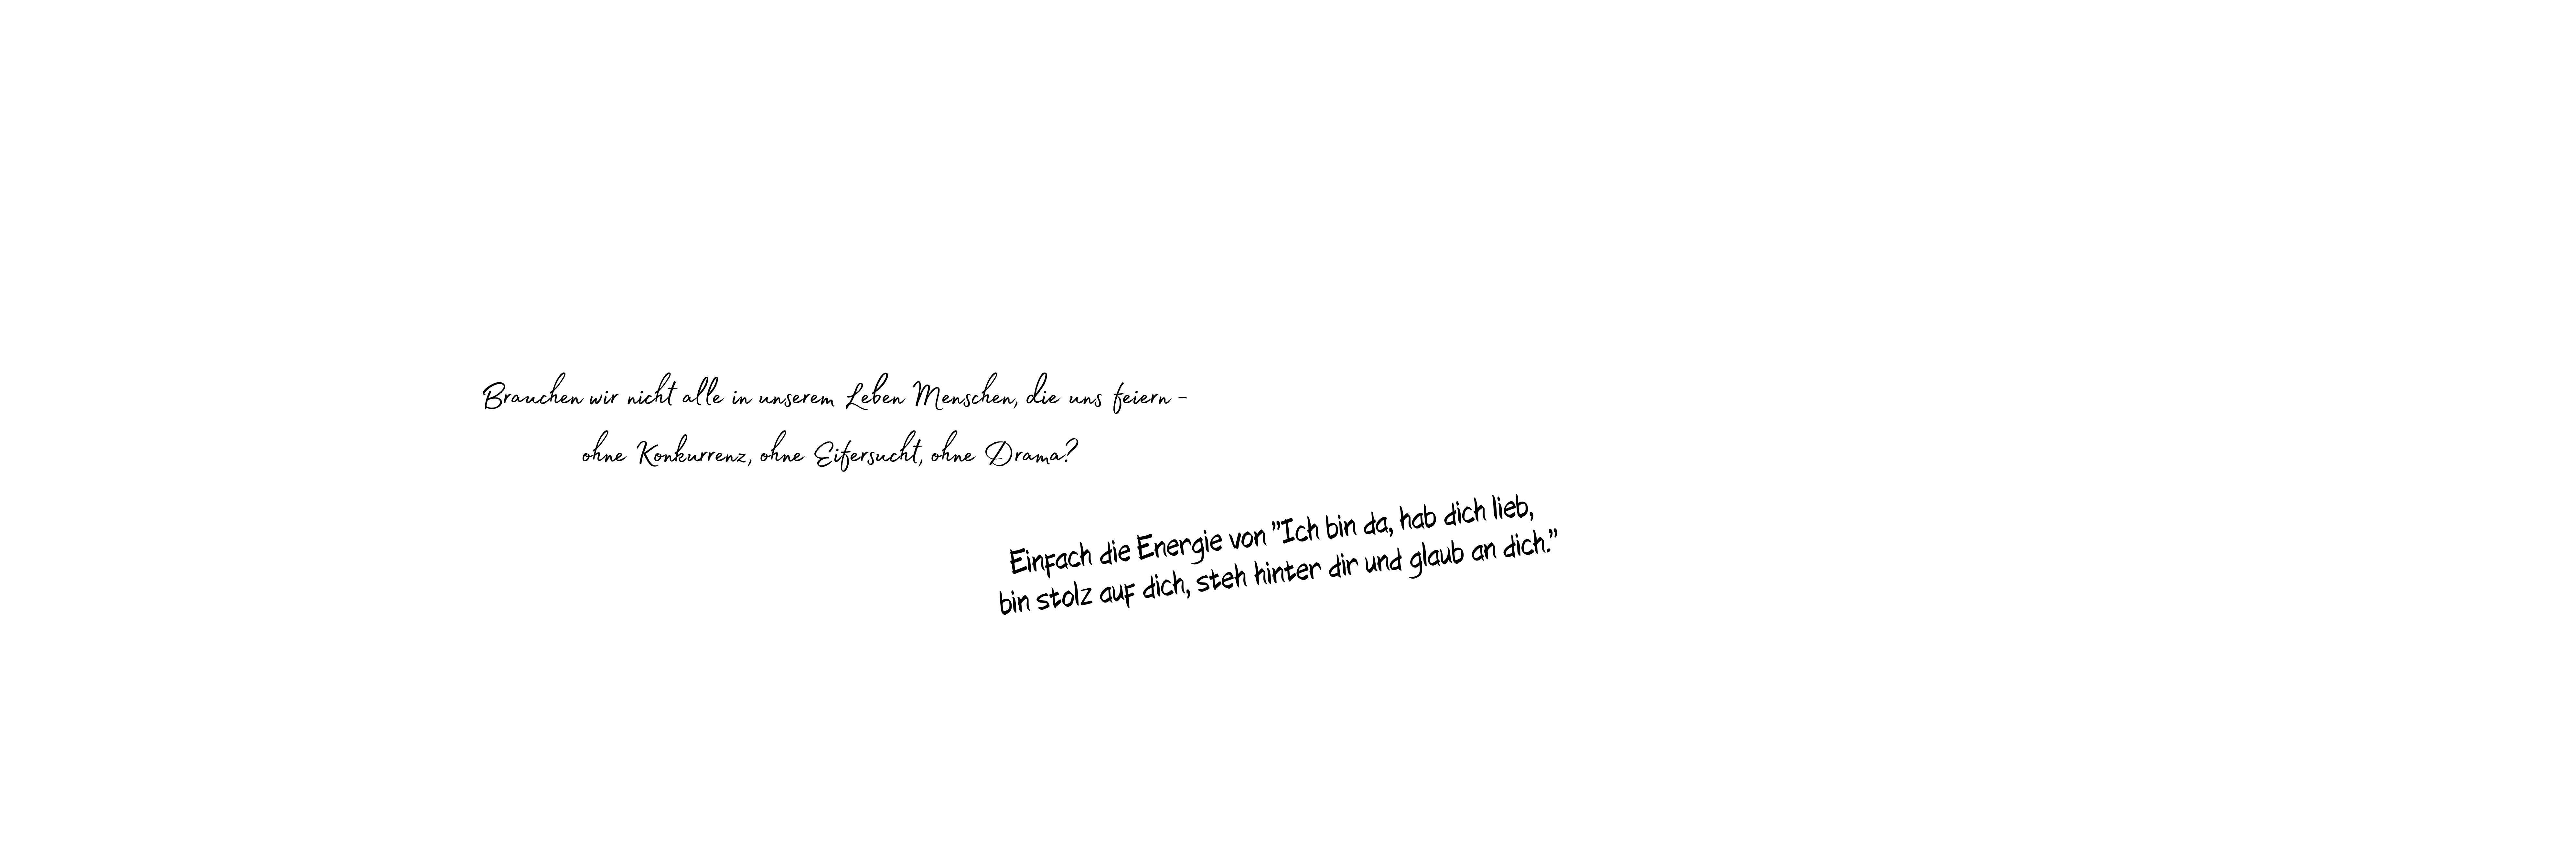 Brauchen wir nicht alle in unserem Leben Menschen, die uns feiern -
ohne Konkurrenz, ohne Eifersucht, ohne Drama?
Einfach die Energie von "Ich bin da, hab dich lieb,
bin stolz auf dich, steh hinter dir und glaub an dich."